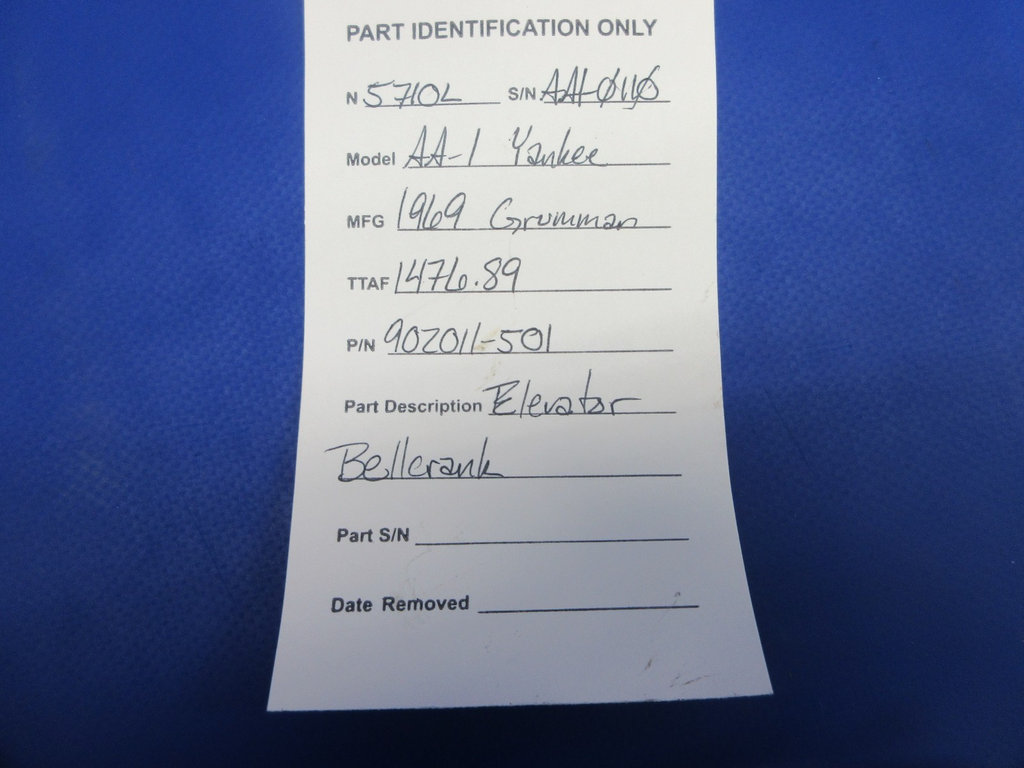 PART IDENTIFICATION ONLY
N 5710L S/N AA1-0110
Model AA-1 Yankee
MFG 1969 Grumman
TTAF 1476.89
P/N 902011-501
Part Description Elevator
Bellcrank
Part S/N
Date Removed